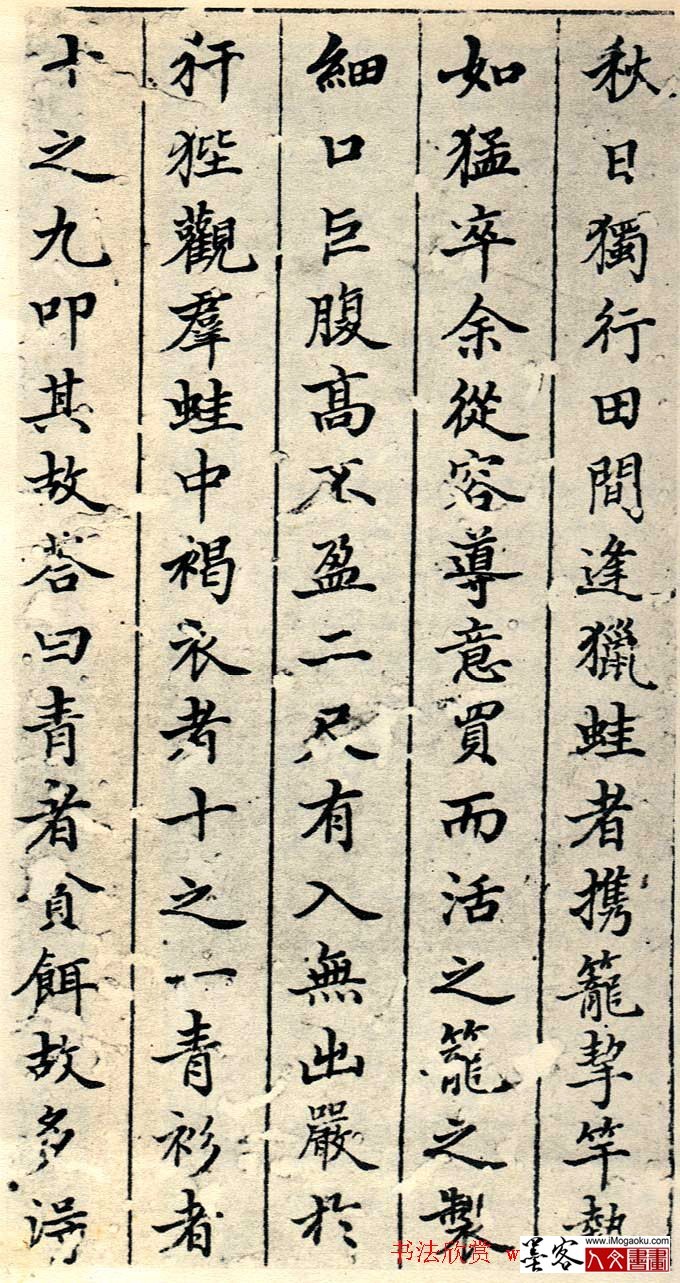 秋日獨行田間逢獵蛙者携籠挈竿勢
如猛卒余從容導意買而活之籠之製
細口巨腹高不盈二尺有入無出嚴於
犴狴觀羣蛙中褐衣者十之一青衫者
十之九叩其故荅曰青者貪餌故多得
书法欣赏 w
墨客
www.iMogaoku.com
人文書畫